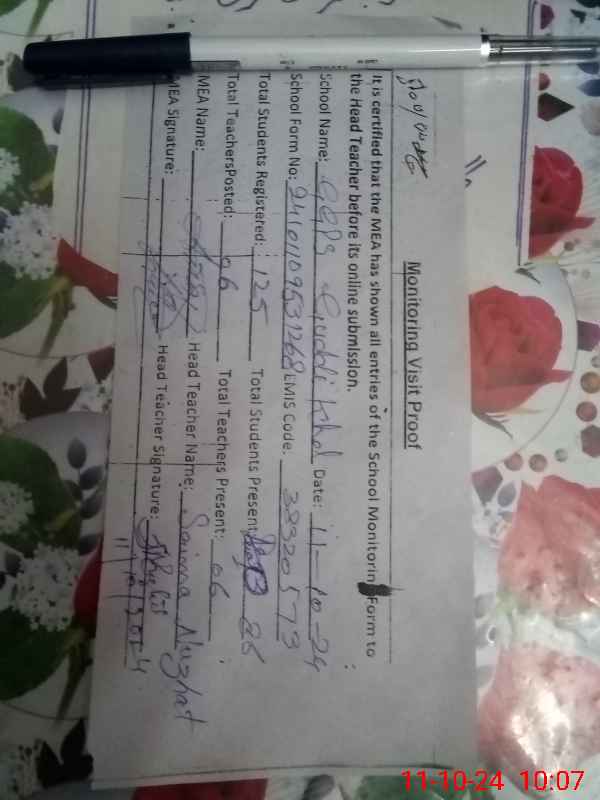 Monitoring Visit Proof
It is certified that the MEA has shown all entries of the School Monitoring Form to
the Head Teacher before its online submission.
School Name: GGPS Guddi Khel Date: 11-10-24
School Form No: EMIS Code. 38320573
Total Students Registered: 125 Total Students Present: 86
Total TeachersPosted: 06 Total Teachers Present: 06
MEA Name: Head Teacher Name: Saima Nughat
MEA Signature: Head Teacher Signature:
11-10-24 10:07